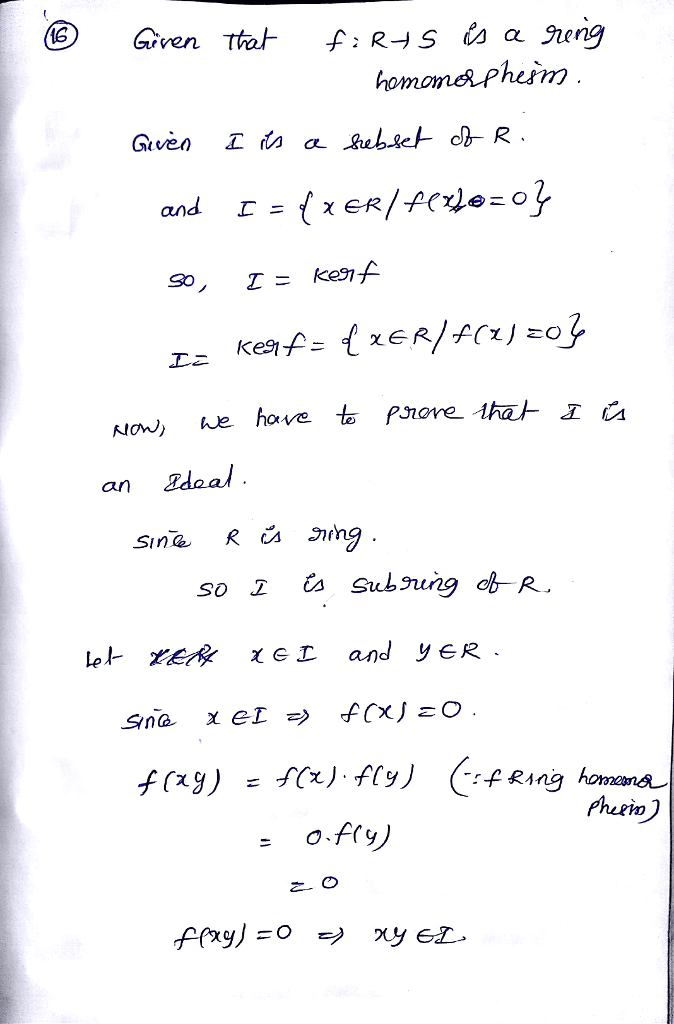 16 Given that f: R→S is a ring
homomorphism.
Given I is a subset of R.
and I = {x ∈R/ f(x)=0}
so, I = kerf
I= kerf = {x∈R/f(x)=0}
Now, we have to prove that I is
an Ideal.
Since R is ring.
so I is subring of R.
Let x∈I and y∈R.
Since x∈I ⇒ f(x)=0.
f(xy) = f(x).f(y) (∵f Ring homomor
phism)
= 0.f(y)
=0
f(xy)=0 ⇒ xy∈I